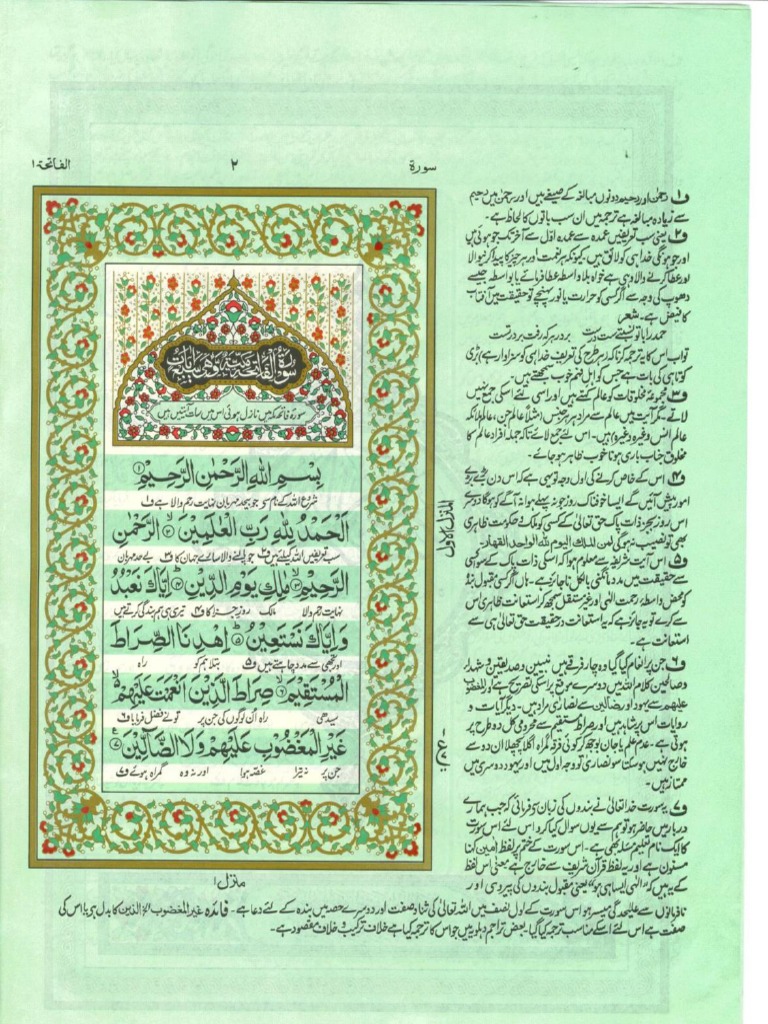 سورة ٢ الفاتحة ١
سُوْرَةُ الْفَاتِحَةِ مَكِّيَّةٌ وَّهِيَ سَبْعُ اٰيَاتٍ
سورۃ فاتحہ مکہ میں نازل ہوئی اس میں سات آیتیں ہیں
بِسْمِ اللّٰهِ الرَّحْمٰنِ الرَّحِيْمِ ۝۱
شروع اللہ کے نام سے جو بیحد مہربان نہایت رحم والا ہے ف۱
اَلْحَمْدُ لِلّٰهِ رَبِّ الْعٰلَمِيْنَ ۝۲ الرَّحْمٰنِ
سب تعریفیں اللہ کیلئے ہیں ف۲ جو پالنے والا سارے جہان کا ف۳ بے حد مہربان
الرَّحِيْمِ ۝۳ مٰلِكِ يَوْمِ الدِّيْنِ ۝۴ اِيَّاكَ نَعْبُدُ
نہایت رحم والا مالک روز جزا کا ف۴ تیری ہی ہم بندگی کرتے ہیں
وَاِيَّاكَ نَسْتَعِيْنُ ۝۵ اِهْدِنَا الصِّرَاطَ
اور تجھی سے مدد چاہتے ہیں ف۵ بتلا ہم کو راہ
الْمُسْتَقِيْمَ ۝۶ صِرَاطَ الَّذِيْنَ اَنْعَمْتَ عَلَيْهِمْ
سیدھی راہ اُن لوگوں کی جن پر تو نے فضل فرمایا ف۶
غَيْرِ الْمَغْضُوْبِ عَلَيْهِمْ وَلَا الضَّآلِّيْنَ ۝۷
جن پر نہ تیرا غصہ ہوا اور نہ وہ گمراہ ہوئے ف۷
منزل ۱
المنزل الاول
ف۱ رحمٰن اور رحیم دونوں مبالغہ کے صیغے ہیں اور رحمٰن میں رحیم
سے زیادہ مبالغہ ہے ترجمہ میں ان سب باتوں کا لحاظ ہے۔
ف۲ یعنی سب تعریفیں عمدہ سے عمدہ اول سے آخر تک جو ہوئی ہیں
اور جو ہونگی خدا ہی کو لائق ہیں۔ کیونکہ ہر نعمت اور ہر چیز کا پیدا کرنیوالا
اور عطا کرنے والا وہی ہے خواہ بلا واسطہ عطا فرمائے یا بالواسطہ جیسے
دھوپ کی وجہ سے اگر کسی کو حرارت یا نور پہنچے تو حقیقت میں آفتاب
کا فیض ہے۔ شعر
حمد را با تو نسبتے ست درست بر در ہر کہ رفت بر در تست
تو اب اس کا یہ ترجمہ کرنا کہ ہر طرح کی تعریف خدا ہی کو سزاوار ہے بڑی
کوتاہی کی بات ہے جس کو اہل فہم خوب سمجھتے ہیں۔
ف۳ مجموعۂ مخلوقات کو عالم کہتے ہیں اور اسی لئے اسکی جمع نہیں
لاتے مگر آیت میں عالم سے مراد ہر ہر جنس (مثلاً عالم جن، عالم ملائکہ
عالم انس وغیرہ وغیرہ) ہیں۔ اس لئے جمع لائے تاکہ جملہ افراد عالم کا
مخلوق جناب باری ہونا خوب ظاہر ہو جائے۔
ف۴ اس کے خاص کرنے کی اول وجہ تو یہی ہے کہ اس دن بڑے بڑے
امور پیش آئیں گے ایسا خوفناک روز جو نہ پہلے ہوا نہ آگے کو ہوگا دوسرے
اس روز بجز ذات پاک حق تعالیٰ کے کسی کو ملک و حکومت ظاہری
بھی تو نصیب نہ ہوگی لمن الملك اليوم لله الواحد القهار۔
ف۵ اس آیت شریفہ سے معلوم ہوا کہ اسکی ذات پاک کے سوا کسی
سے حقیقت میں مدد مانگنی بالکل ناجائز ہے۔ ہاں اگر کسی مقبول بندہ
کو محض واسطۂ رحمت الٰہی اور غیر مستقل سمجھ کر استعانت ظاہری اس
سے کرے تو یہ جائز ہے کہ یہ استعانت در حقیقت حق تعالیٰ ہی سے
استعانت ہے۔
ف۶ جن پر انعام کیا گیا وہ چار فرقے ہیں نبیین و صدیقین و شہدا
و صالحین کلام اللہ میں دوسرے موقع پر اسکی تصریح ہے اور المغضوب
علیہم سے یہود اور ضالین سے نصاریٰ مراد ہیں۔ دیگر آیات و
روایات اس پر شاہد ہیں اور صراط مستقیم سے محرومی کل دو طرح پر
ہوتی ہے۔ عدم علم یا جان بوجھ کر کوئی فرقہ گمراہ اگلا پچھلا ان دو سے
خارج نہیں ہو سکتا سو نصاریٰ تو وجہ اول میں اور یہود دوسری میں
ممتاز ہیں۔
ف۷ یہ سورت خدا تعالیٰ نے بندوں کی زبان سے فرمائی کہ جب ہمارے
دربار میں حاضر ہو تو ہم سے یوں سوال کیا کرو اس لئے اس سورت
کا ایک نام تعلیم مسئلہ بھی ہے۔ اس سورت کے ختم پر لفظ آمین کہنا
مسنون ہے اور یہ لفظ قرآن شریف سے خارج ہے معنی اس لفظ
کے یہ ہیں کہ "الٰہی ایسا ہی ہو" یعنی مقبول بندوں کی پیروی اور
نافرمانوں سے علیحدگی میسر ہو اس سورت کے اول نصف میں اللہ تعالیٰ کی ثنا و صفت اور دوسرے حصہ میں بندہ کے لئے دعا ہے۔ فائدہ غیر المغضوب الخ الذین کا بدل ہے یا اس کی
صفت ہے اس لئے اسکے مناسب ترجمہ کیا گیا۔ بعض تراجم دہلویہ میں جو اس کا ترجمہ کیا ہے خلاف ترکیب و خلاف مقصود ہے۔